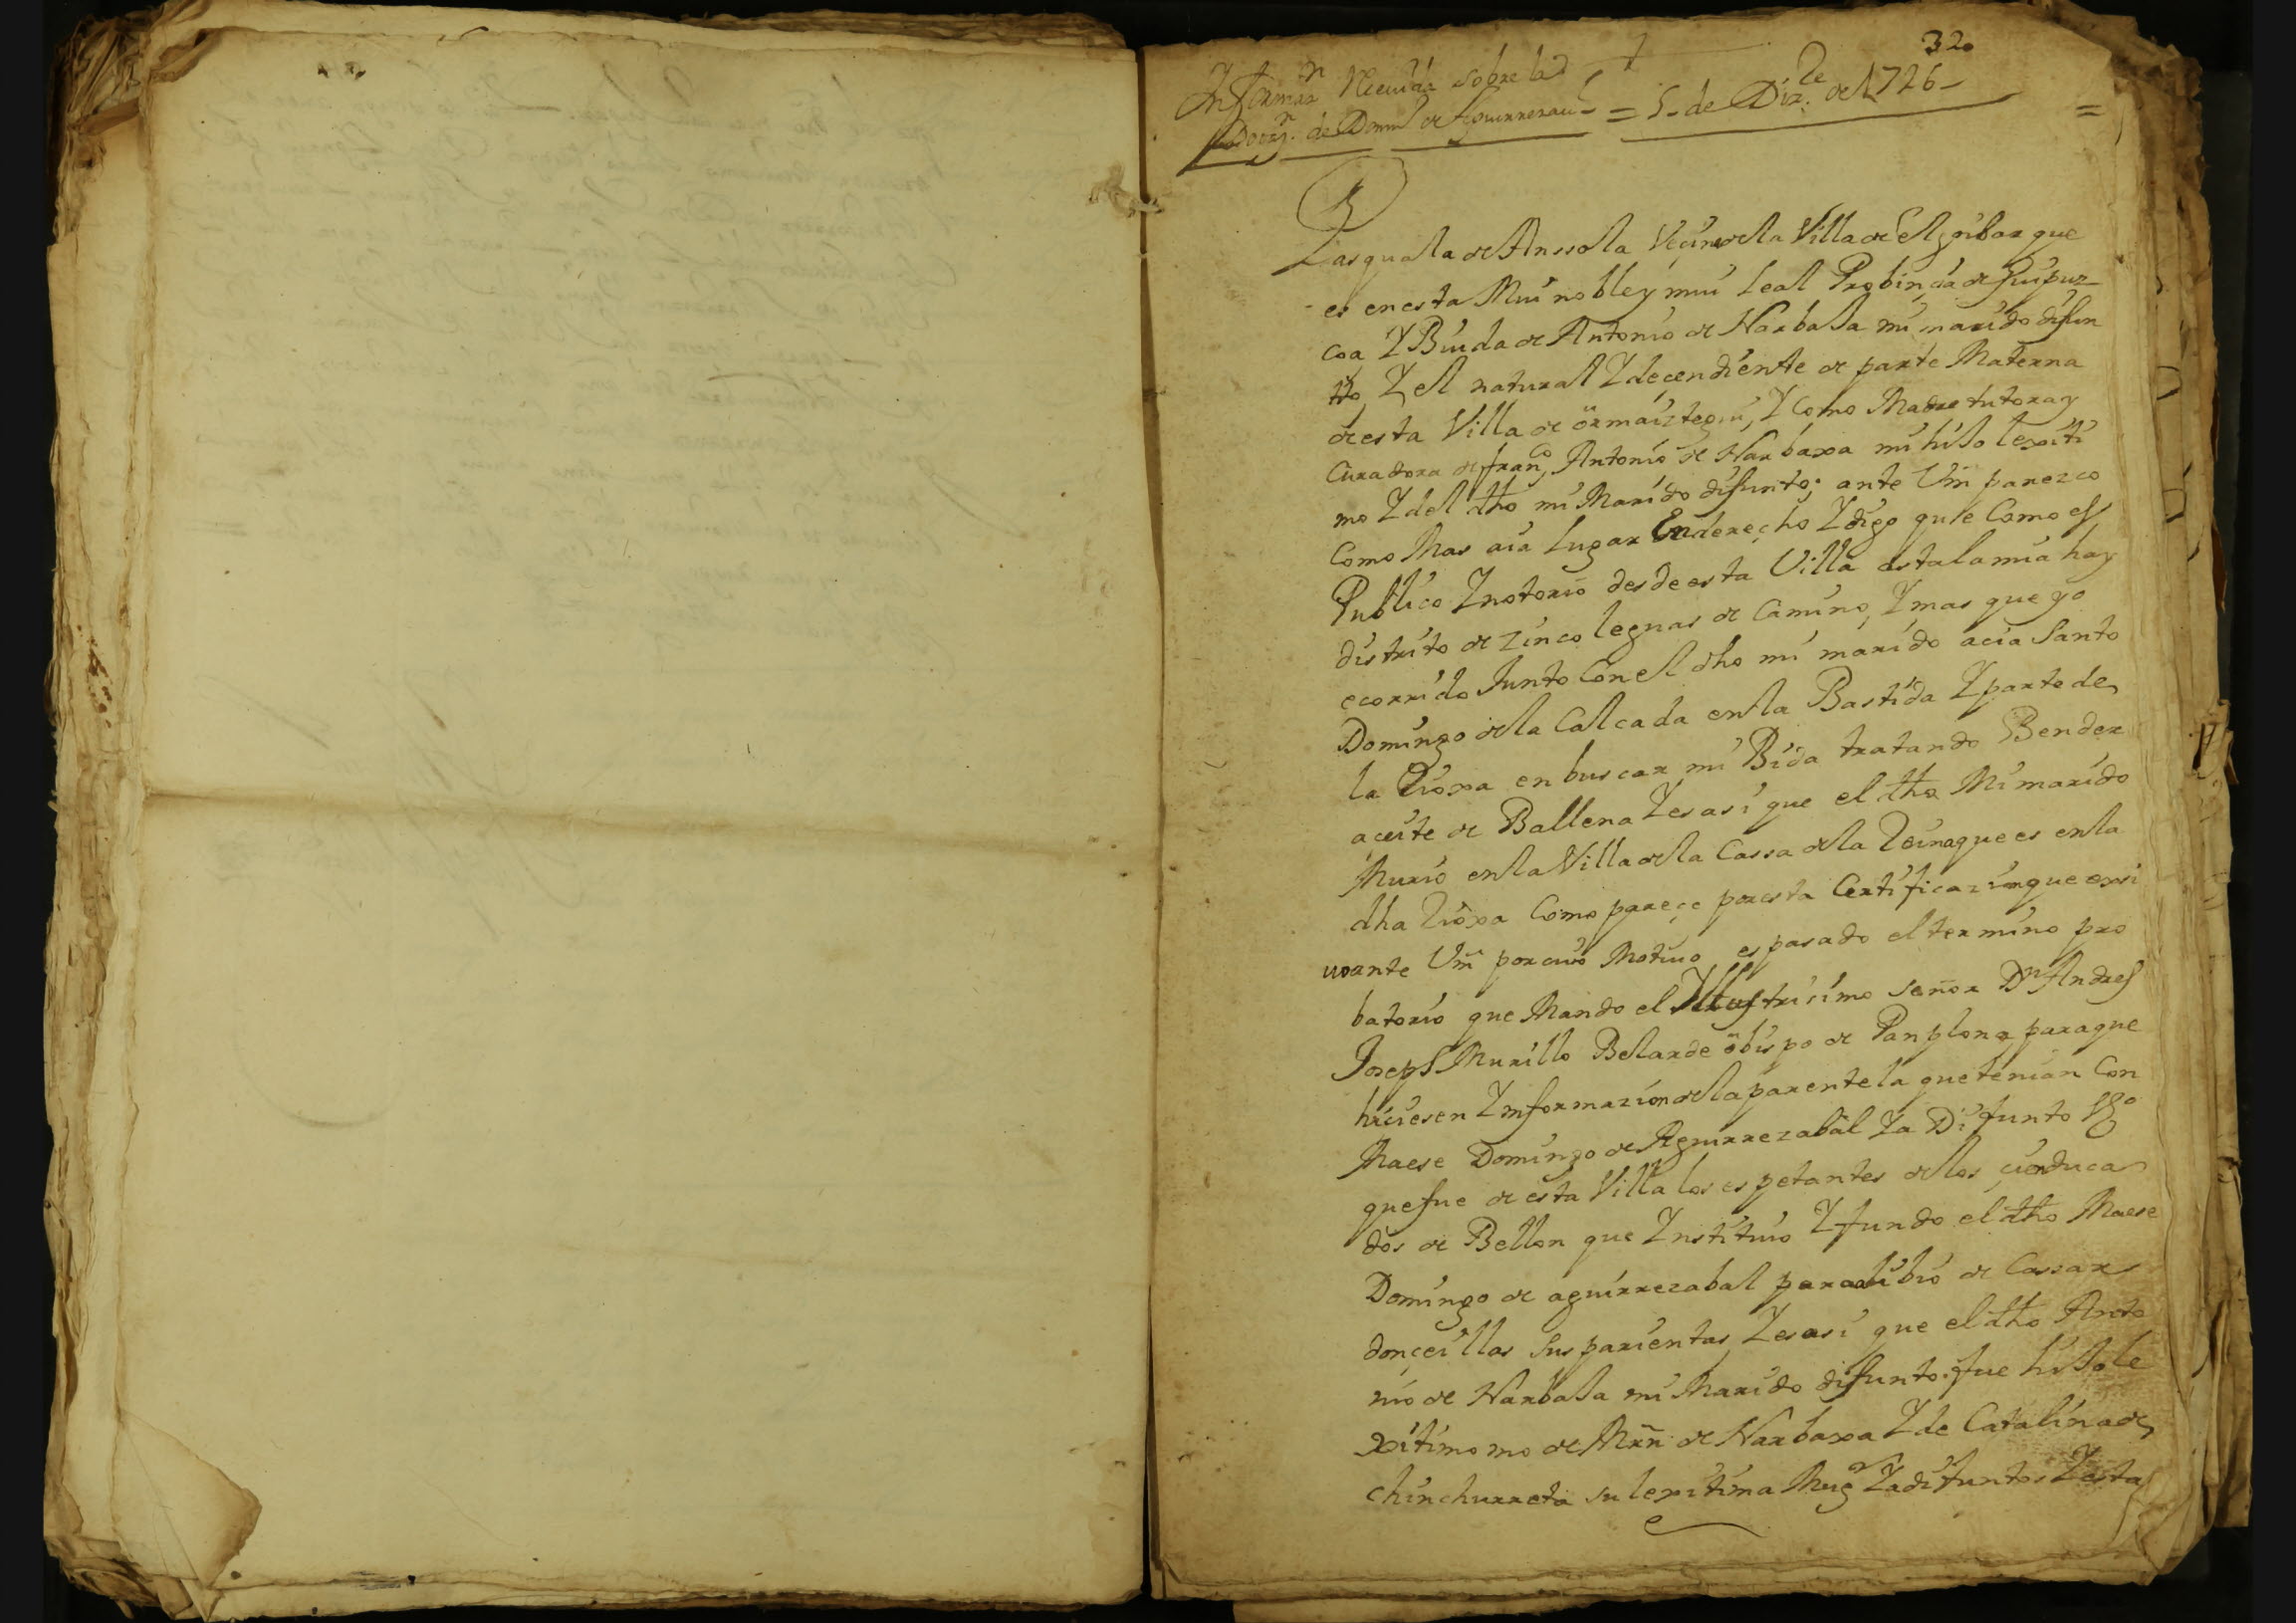 32
Informaz.n Reciuida sobre la
Dotaz.n de Dom.o de Aguirrezaual = 5 de Diz.re de 1726 =
Pasquala de Anssola Vecina de la Villa de Elgoibar que
es en esta Mui noble y mui Leal Probinçia de Guipuz
coa, Y Biuda de Antonio de Narbaja mi marido difun
tto, Y el natural Y deçendiente de parte Materna
de esta Villa de ormaiztegui, Y Como Madre tutora y
Curadora de fran.co Antonio de Narbaxa mi hijo lexiti
mo Y del dho mi Marido difunto; ante Vm parezco
Como Mas aia Lugar En derecho Y digo que Como es
Publico Y notorio desde esta Villa asta la mia hay
distrito de Zinco leguas de Camino, Y mas que yo
e corrido Junto Con el dho mi marido acia Santo
Domingo de la Calcada en la Bastida Y parte de
la Rioxa en buscar mi Bida tratando Bender
aceite de Ballena Y es asi que el dho Mi marido
Murio en la Villa de la Cassa de la Reina que es en la
dha Rioxa Como pareçe por esta Certificazion que exsi
uo ante Vm por cuio Motiuo es pasado el termino pro
batorio que Mando el Yllustrisimo señor Dn Andres
Joseph Murillo Belarde obispo de Panplona para que
hiciesen Ynformazion de la parentela que tenian Con
Maese Domingo de Aguirrezabal Ya Difunto
que fue de esta Villa los espetantes de los çien duca
dos de Bellon que Ynstituio Y fundo el dho Maese
Domingo de aguirrezabal para alibio de Cassar
donçeillas sus parientas, Y es asi que el dho Anto
nio de Narbaja mi Marido difunto fue hijo le
xitimo mo de Mrn de Narbaxa Y de Catalina de
chinchurreta su lexitima Mug.r Ya difuntos Y esta